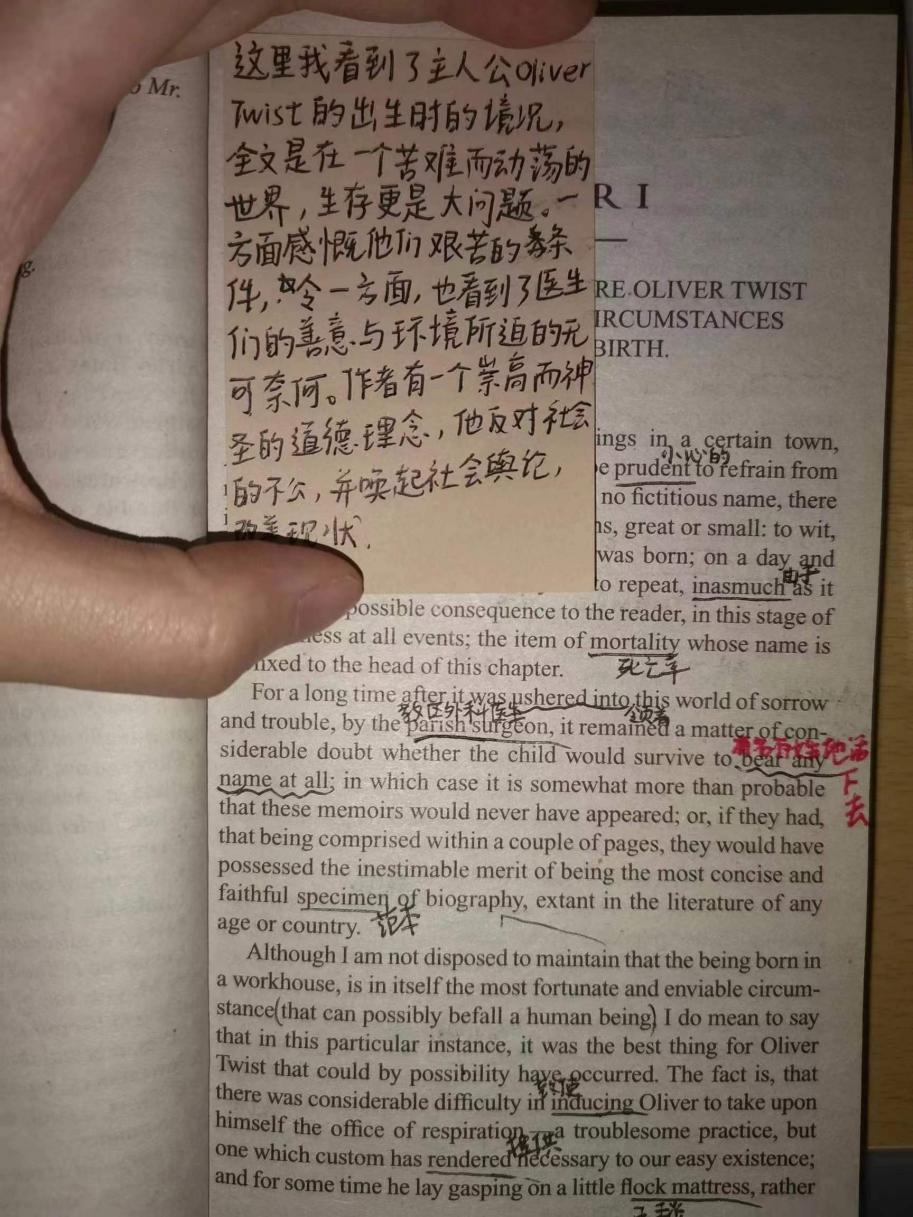 o Mr.
g.
这里我看到了主人公Oliver
Twist的出生时的境况,
全文是在一个苦难而动荡的
世界,生存更是大问题。一
方面感慨他们艰苦的条
件,令一方面,也看到了医生
们的善意与环境所迫的无
可奈何。作者有一个崇高而神
圣的道德理念,他反对社会
的不公,并唤起社会舆论,
改善现状.
R I
RE OLIVER TWIST
IRCUMSTANCES
BIRTH.
ings in a certain town,
小心的
e prudent to refrain from
no fictitious name, there
ns, great or small: to wit,
was born; on a day and
由于
to repeat, inasmuch as it
possible consequence to the reader, in this stage of
ness at all events; the item of mortality whose name is
死亡率
fixed to the head of this chapter.
For a long time after it was ushered into this world of sorrow
教区外科医生 领着
and trouble, by the parish surgeon, it remained a matter of con-
siderable doubt whether the child would survive to bear any
有名有姓地活下去
name at all; in which case it is somewhat more than probable
that these memoirs would never have appeared; or, if they had,
that being comprised within a couple of pages, they would have
possessed the inestimable merit of being the most concise and
faithful specimen of biography, extant in the literature of any
范本
age or country.
Although I am not disposed to maintain that the being born in
a workhouse, is in itself the most fortunate and enviable circum-
stance(that can possibly befall a human being) I do mean to say
that in this particular instance, it was the best thing for Oliver
Twist that could by possibility have occurred. The fact is, that
致使
there was considerable difficulty in inducing Oliver to take upon
himself the office of respiration,—a troublesome practice, but
提供
one which custom has rendered necessary to our easy existence;
and for some time he lay gasping on a little flock mattress, rather